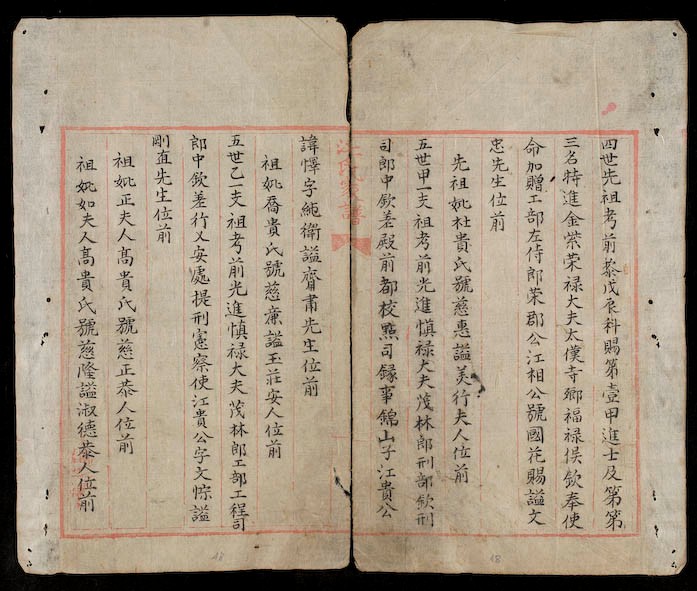 四世先祖考前黎戊辰科賜第壹甲進士及第第
三名特進金紫荣禄大夫太僕寺卿福禄侯欽奉使
命加贈工部左侍郎荣郡公江相公號國花賜謚文
忠先生位前
先祖妣杜貴氏號慈惠謚美行夫人位前
五世甲一支祖考前光進慎禄大夫茂林郎刑部欽刑
司郎中欽差殿前都校點司録事錦山子江貴公
江氏家譜
諱懌字純衛謚齋肅先生位前
祖妣喬貴氏號慈廉謚玉莊安人位前
五世乙一支祖考前光進慎禄大夫茂林郎工部工程司
郎中欽差行乂安處提刑憲察使江貴公字文悰謚
剛直先生位前
祖妣正夫人髙貴氏號慈正恭人位前
祖妣如夫人髙貴氏號慈隆謚淑德恭人位前
18
18